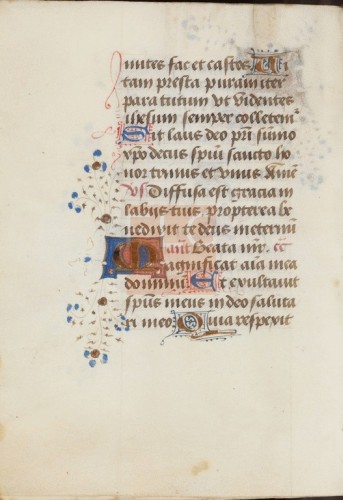 mites fac et castos Vi
tam presta puram iter
para tutum vt videntes
ihesum semper colletem
Sit laus deo pri sumo
xpo decus spiui sancto ho
nor trinus et vnus Ame
vs Diffusa est gracia in
labijs tuis propterea be
nedixit te deus in eternu
Beata mr.
Magnificat aia mea
dominu Et exultauit
spus meus in deo saluta
ri meo Quia respexit